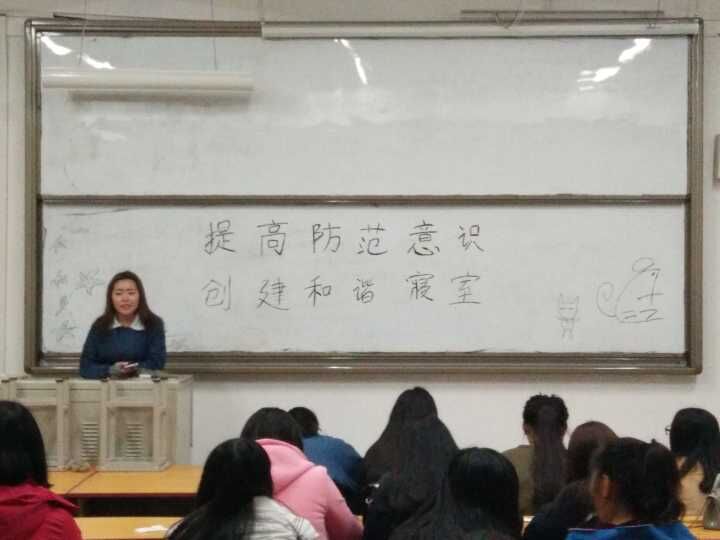 提高防范意识
创建和谐寝室